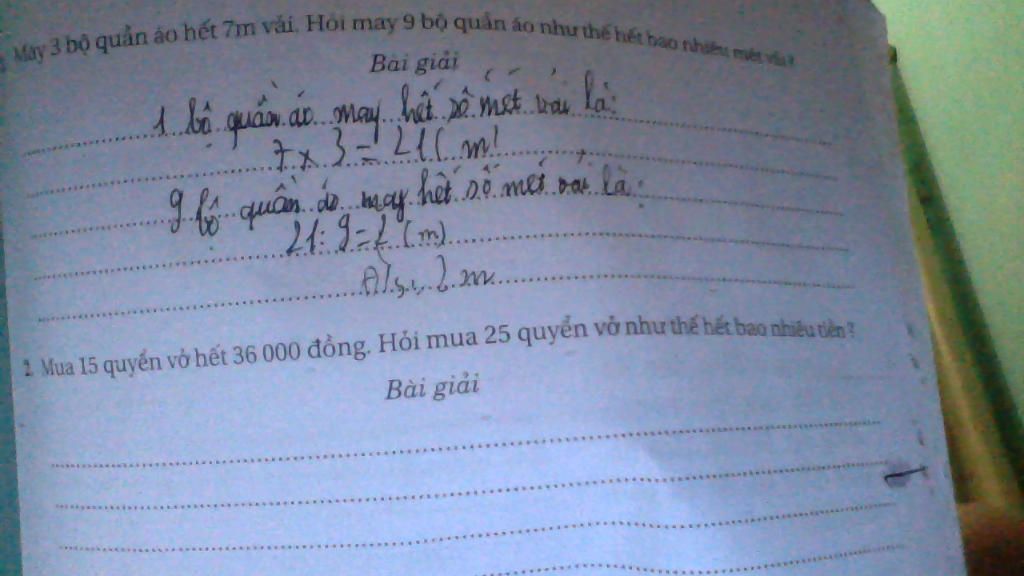 May 3 bộ quần áo hết 7m vải. Hỏi may 9 bộ quần áo như thế hết bao nhiêu mét vải?
Bài giải
1 bộ quần áo may hết số mét vải là:
7 x 3 = 21 ( m
9 bộ quần áo may hết số mét vải là:
21 : 9 = 2 (m)
2 m
2. Mua 15 quyển vở hết 36 000 đồng. Hỏi mua 25 quyển vở như thế hết bao nhiêu tiền?
Bài giải